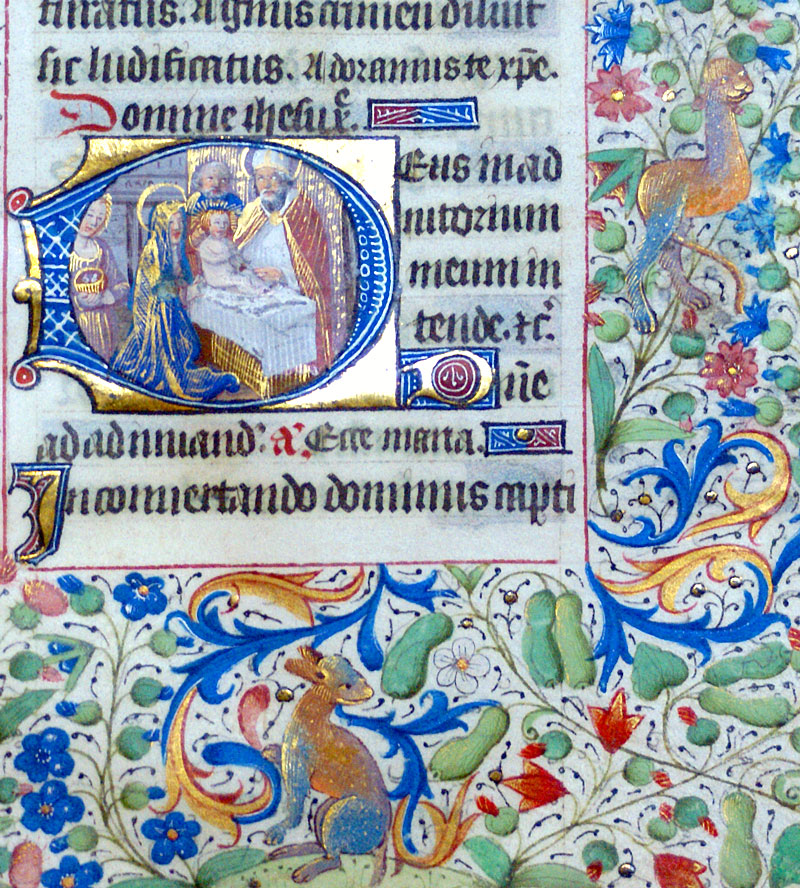 turatus. Agnus crimen diluit
sic ludificatus. Adoramus te xp̄e.
Domine ihesu xͤ.
Deus in ad
iutorium
meum in
tende. ⁊cͣ.
D n̄e
ad adiuuand'. a'. Ecce maria.
In conuertendo dominus capti